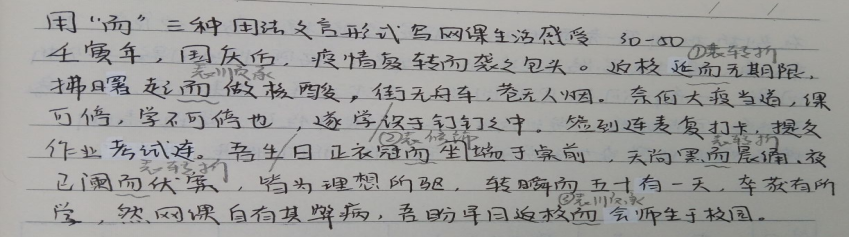 用“而”三种用法文言形式写网课生活感受 30-50
①表转折
壬寅年，国庆后，疫情复转而袭之包头。返校延而无期限，
表顺承
拂日署起而做核酸，街无舟车，巷无人烟。奈何大疫当道，课
可停，学不可停也，遂学识于钉钉之中。签到连麦复打卡，提交
②表修饰 表转折
作业考试连。吾生日正衣冠而坐端于桌前，天尚黑而晨诵、夜
表转折
已阑而伏案，皆为理想所驱，转瞬而五十有一天，幸获有所
③表顺承
学，然网课自有其弊病，吾盼早日返校而会师生于校园。